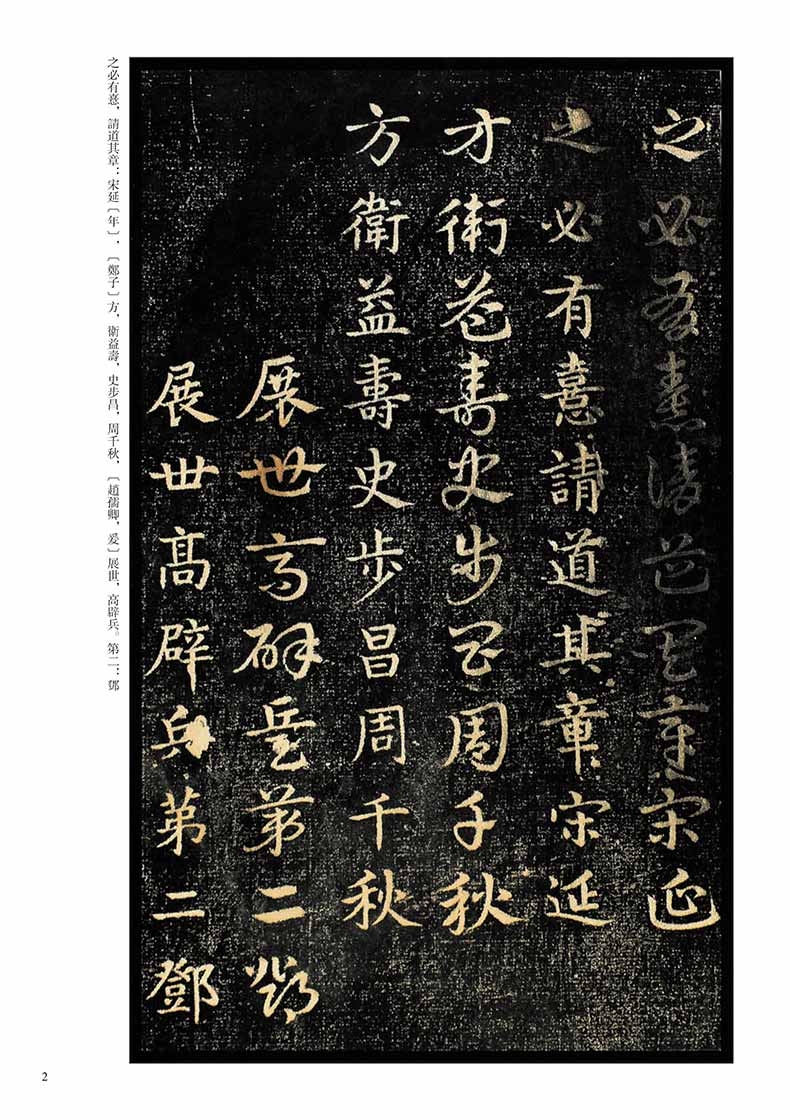 之必有憙請道其章宋延
之必有憙請道其章宋延
方衛益壽史步昌周千秋
方衛益壽史步昌周千秋
展世高辟兵第二鄧
展世高辟兵第二鄧
之必有憙，請道其章：宋延〔年〕，〔鄭子〕方，衛益壽，史步昌，周千秋，〔趙孺卿，爰〕展世，高辟兵。第二：鄧
2